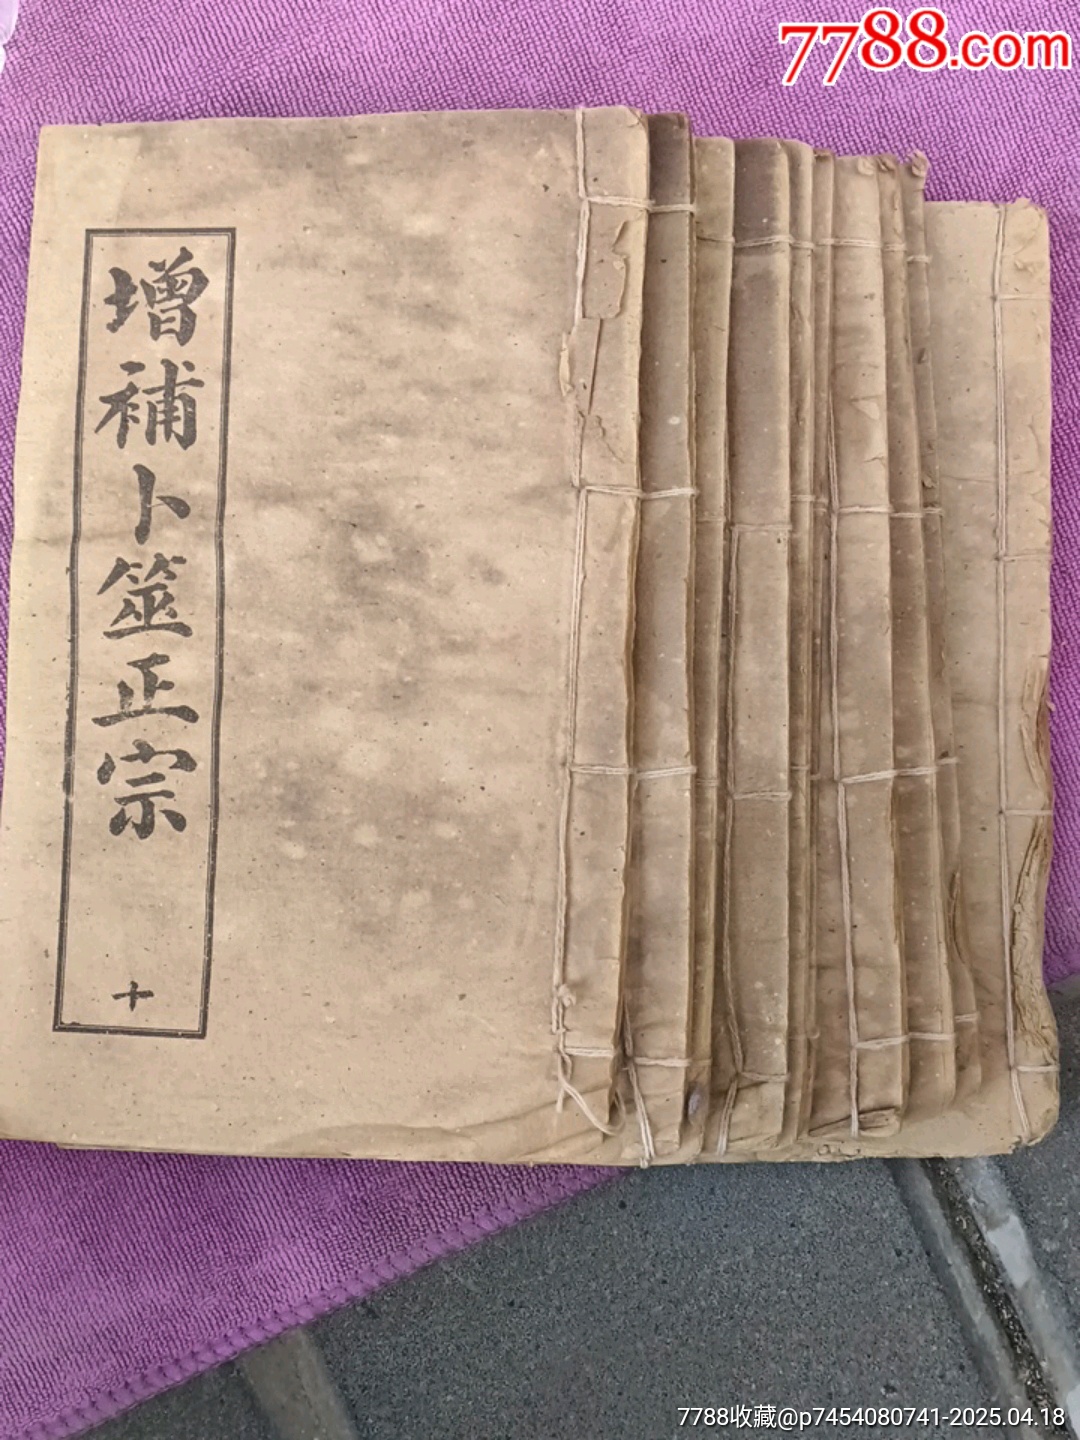 7788.com
增補卜筮正宗
十
7788收藏@p7454080741-2025.04.18